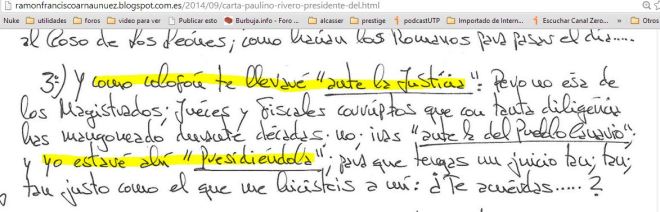 ramonfranciscoarnaunuez.blogspot.com.es/2014/09/carta-paulino-rivero-presidente-del.html
Nuke utilidades foros video para ver Publicar esto Burbuja.info - Foro ... alcasser prestige podcastUTP Importado de Intern... Escuchar Canal Zero... Otros
al Coso de los Leones; como hacían los Romanos para pasar el día.....
3º) Y como colofón te llevaré "ante la Justicia": Pero no esa de
los Magistrados; Jueces y Fiscales corruptos que con tanta diligencia
has mangoneado durante décadas; no; iras "ante la del Pueblo Canario",
y yo estaré ahí "Presidiéndola"; para que tengas un juicio tan; tan;
tan justo como el que me hicisteis a mí: ¿Te acuerdas.....?